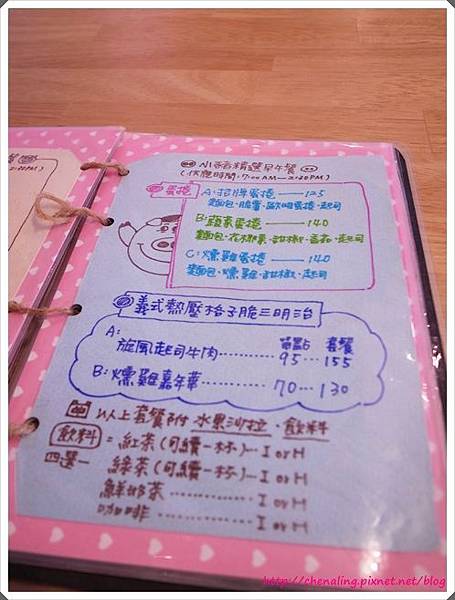 小豬精選早午餐
(供應時間:7:00 AM—2:30PM)
蛋捲
A:招牌蛋捲——125
麵包、脆薯、歐姆蛋捲、起司
B:蔬素蛋捲——140
麵包、花椰菜、甜椒、香菇、起司
C:燻雞蛋捲——140
麵包、燻雞、甜椒、起司
義式熱壓格子脆三明治
單點 套餐
A:
旋風起司牛肉 95...155
B:燻雞嘉年華 70...130
以上套餐附 水果沙拉、飲料
飲料 = 紅茶(可續一杯)...I or H
四選一 綠茶(可續一杯)...I or H
鮮奶茶 I or H
咖啡 I or H
http://chenaling.pixnet.net/blog